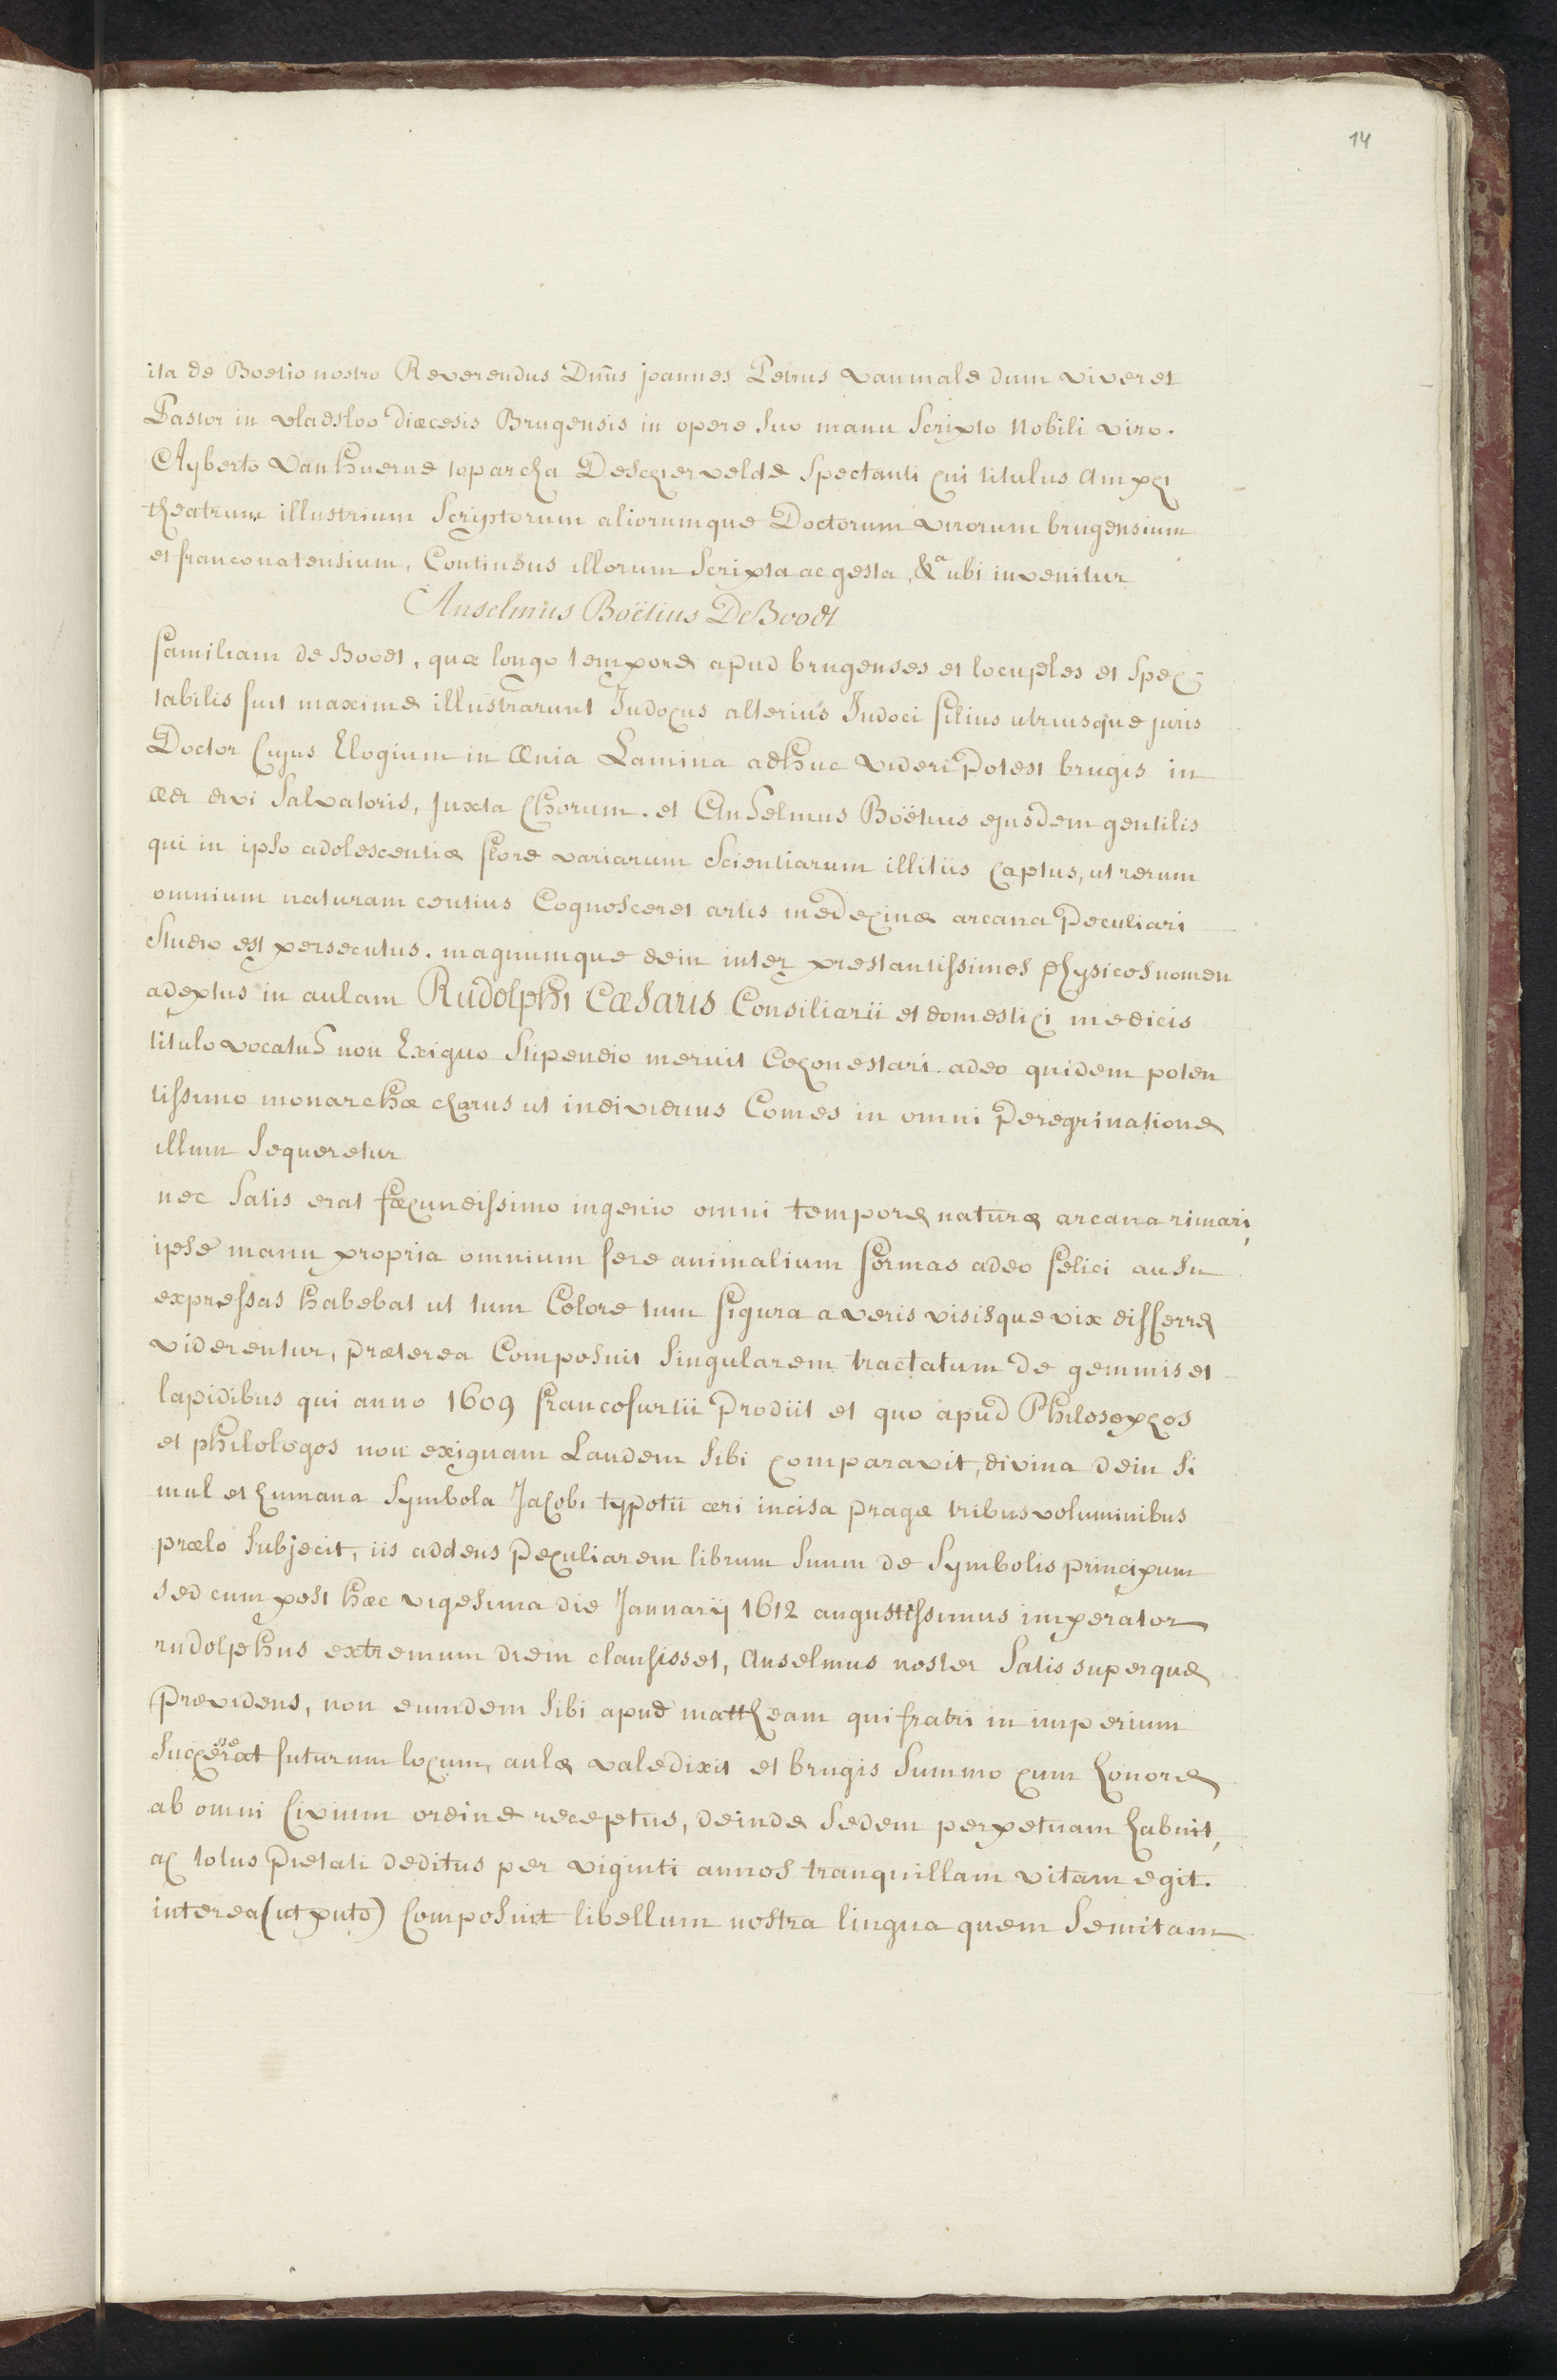 14
ita de Boetio nostro Reverendus Dnūs joannes Petrus vanmale dum viveret
Pastor in vladsloo diæcesis Brugensis in opere suo manu scripto Nobili viro.
Ayberto Vanhuerne toparcha Deschiervelde spectanti cui titulus Amphi
theatrum illustrium scriptorum aliorumque Doctorum virorum brugensium
et franconatensium, Continens illorum scripta ac gesta, &a ubi invenitur
Anselmus Boëtius De Boodt
familiam de Boodt, quæ longo tempore apud brugenses et locuples et spec
tabilis fuit maxime illustrarunt Judocus alterius Judoci filius utriusque juris
Doctor Cujus Elogium in Ænia Lamina adhuc videri potest brugis in
æde divi salvatoris, juxta Chorum. et Anselmus Boëtius ejusdem gentilis
qui in ipso adolescentiæ flore variarum scientiarum illitiis captus, ut rerum
omnium naturam centius Cognosceret artis medecinæ arcana peculiari
studio est persecutus. magnumque dein inter prestantissimos physicos nomen
adeptus in aulam Rudolphi Cæsaris Consiliarii et domestici medicis
titulo vocatus non Exiguo stipendio meruit Cohonestari. adeo quidem poten
tissimo monarchæ charus ut individuus Comes in omni peregrinatione
illum sequeretur
nec satis erat fæcundissimo ingenio omni tempore naturæ arcana rimari,
ipse manu propria omnium fere animalium formas adeo felici ausu
expressas habebat ut tum Colore tum figura a veris visisque vix differre
viderentur, præterea Composuit singularem tractatum de gemmis et
lapidibus qui anno 1609 francofurtii prodiit et quo apud Philosophos
et philologos non exiguam Laudem sibi comparavit, divina dein si
mul et humana symbola Jacobi typotii æri incisa pragæ tribus voluminibus
prælo subjecit, iis addens peculiarem librum suum de symbolis principum
sed cum post hæc vigesima die Januarij 1612 augustissimus imperator
rudolphus extremum diem clausisset, Anselmus noster satis superque
prævidens, non eumdem sibi apud mattheam qui fratri in imperium
succeserat futurum locum, aulæ valedixit et brugis summo cum honore
ab omni Civium ordine receptus, deinde sedem perpetuam habuit,
ac totus pietati deditus per viginti annos tranquillam vitam egit.
interea (ut puto) Composuit libellum nostra lingua quem semitam